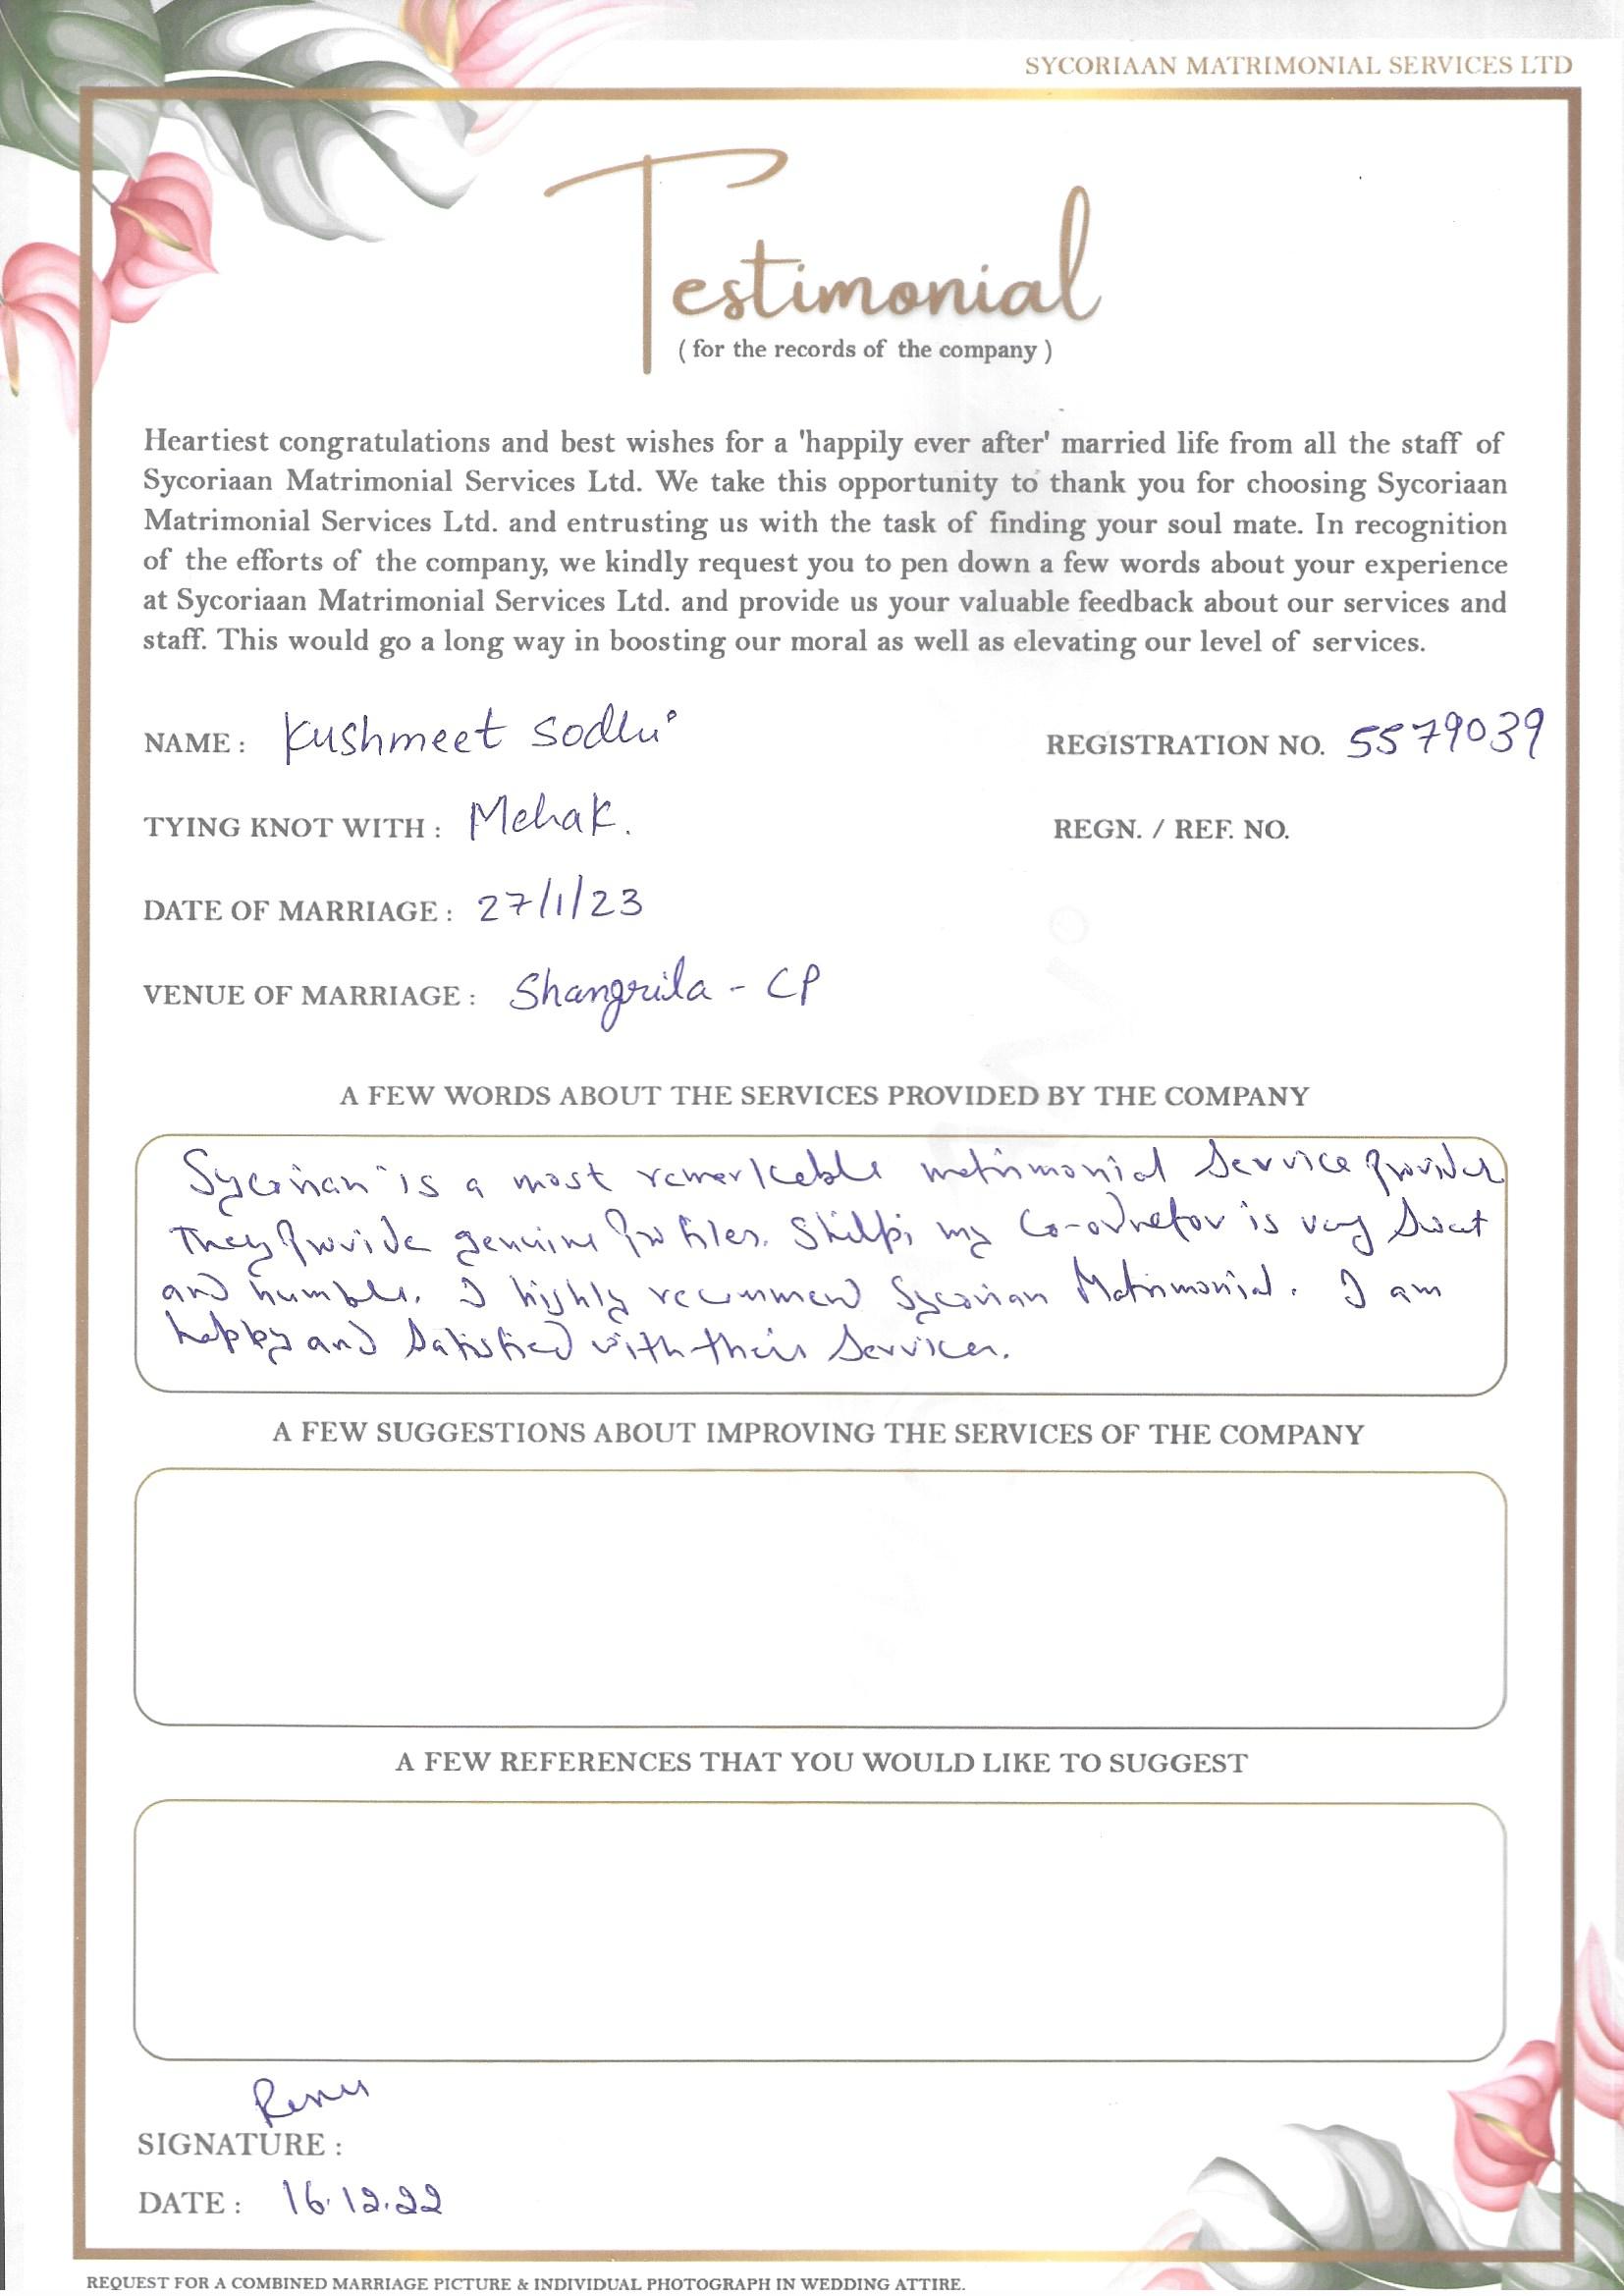 SYCORIAAN MATRIMONIAL SERVICES LTD
Testimonial
( for the records of the company )
Heartiest congratulations and best wishes for a 'happily ever after' married life from all the staff of
Sycoriaan Matrimonial Services Ltd. We take this opportunity to thank you for choosing Sycoriaan
Matrimonial Services Ltd. and entrusting us with the task of finding your soul mate. In recognition
of the efforts of the company, we kindly request you to pen down a few words about your experience
at Sycoriaan Matrimonial Services Ltd. and provide us your valuable feedback about our services and
staff. This would go a long way in boosting our moral as well as elevating our level of services.
NAME : Kushmeet Sodhi REGISTRATION NO. 5579039
TYING KNOT WITH : Mehak. REGN. / REF. NO.
DATE OF MARRIAGE : 27/1/23
VENUE OF MARRIAGE : Shangrila - CP
A FEW WORDS ABOUT THE SERVICES PROVIDED BY THE COMPANY
Sycorian is a most remarkable matrimonial service provider
They provide genuine profiles. Shilpi my Co-ordnator is very sweet
and humble. I highly recommend Sycorian Matrimonial. I am
happy and satisfied with their services.
A FEW SUGGESTIONS ABOUT IMPROVING THE SERVICES OF THE COMPANY
A FEW REFERENCES THAT YOU WOULD LIKE TO SUGGEST
Renu
SIGNATURE :
DATE : 16.12.22
REQUEST FOR A COMBINED MARRIAGE PICTURE & INDIVIDUAL PHOTOGRAPH IN WEDDING ATTIRE.